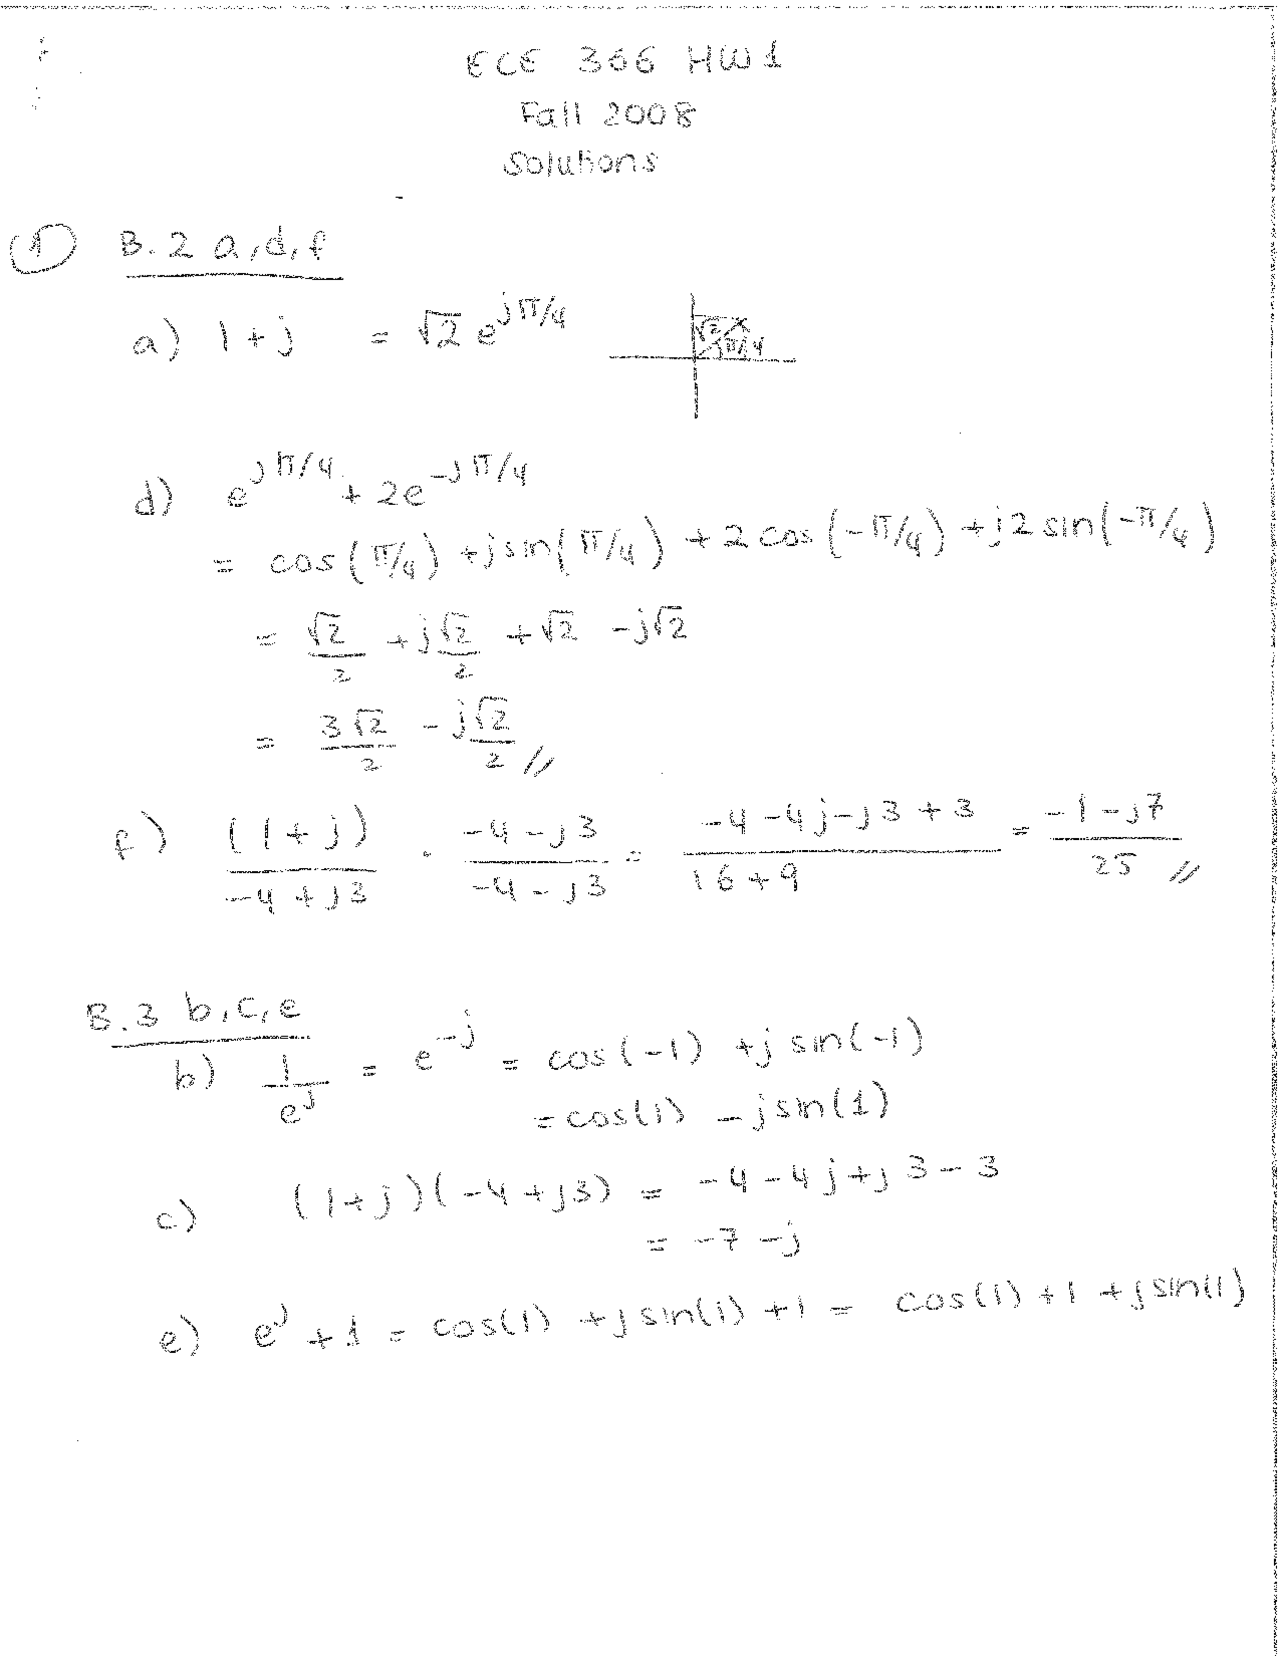 ECE 366 HW1
Fall 2008
Solutions
① B.2 a,d,f
a) 1+j = √2 e^{jπ/4}
√2
π/4
d) e^{jπ/4} + 2e^{-jπ/4}
= cos(π/4) + jsin(π/4) + 2cos(-π/4) + j2sin(-π/4)
= √2/2 + j√2/2 + √2 - j√2
= 3√2/2 - j√2/2 //
f) (1+j)/(-4+j3) · (-4-j3)/(-4-j3) = (-4-4j-j3+3)/(16+9) = (-1-j7)/25 //
B.3 b,c,e
b) 1/e^j = e^{-j} = cos(-1) + jsin(-1)
= cos(1) - jsin(1)
c) (1+j)(-4+j3) = -4-4j+j3-3
= -7-j
e) e^j + 1 = cos(1) + jsin(1) + 1 = cos(1) + 1 + jsin(1)